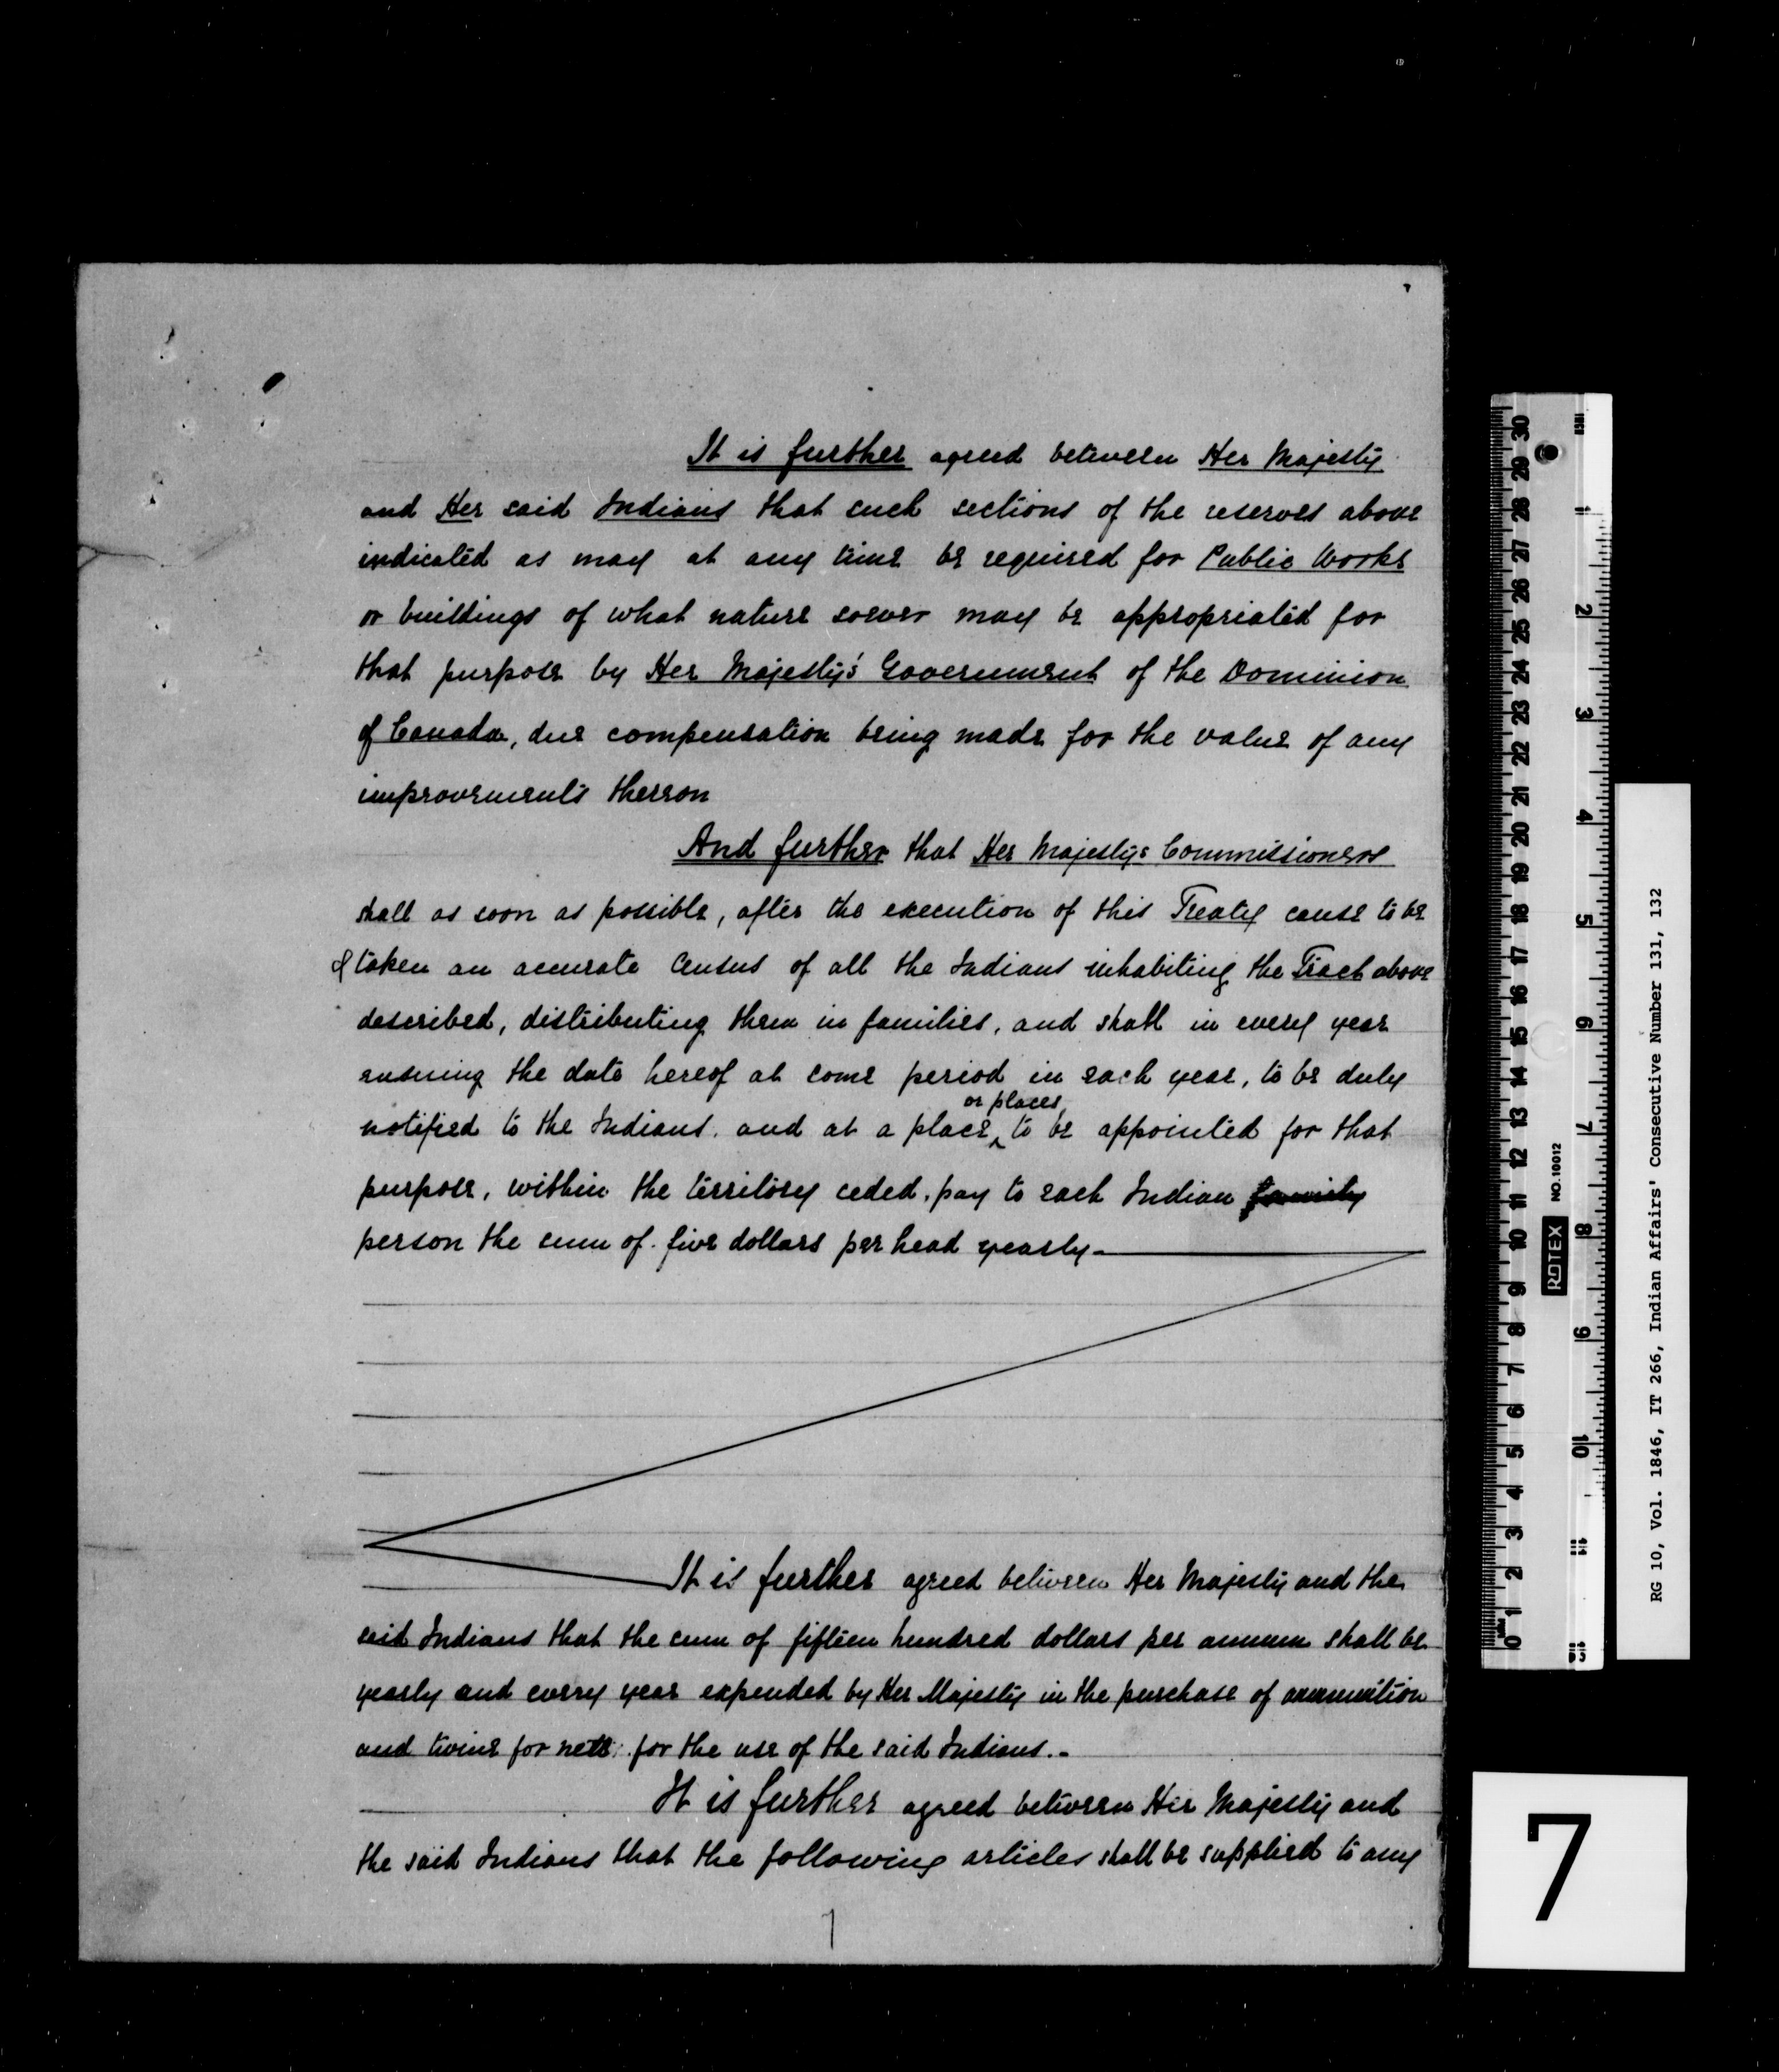 It is further agreed between Her Majesty
and Her said Indians that such sections of the reserves above
indicated as may at any time be required for Public Works
or buildings of what nature soever may be appropriated for
that purpose by Her Majesty's Government of the Dominion
of Canada, due compensation being made for the value of any
improvements thereon
And further that Her Majesty's Commissioners
shall as soon as possible, after the execution of this Treaty cause to be
taken an accurate Census of all the Indians inhabiting the Tract above
described, distributing them in families, and shall in every year
ensuing the date hereof at some period in each year, to be duly
or places
notified to the Indians, and at a place, to be appointed for that
purpose, within the territory ceded, pay to each Indian family
person the sum of five dollars per head yearly.
It is further agreed between Her Majesty and the
said Indians that the sum of fifteen hundred dollars per annum shall be
yearly and every year expended by Her Majesty in the purchase of ammunition
and twine for nets for the use of the said Indians.
It is further agreed between Her Majesty and
the said Indians that the following articles shall be supplied to any
7
30 29 28 27 26 25 24 23 22 21 20 19 18 17 16 15 14 13 12 11 10 9 8 7 6 5 4 3 2 1 0
1 2 3 4 5 6 7 8 9 10 11 12
ROTEX NO.10012
RG 10, Vol. 1846, IT 266, Indian Affairs' Consecutive Number 131, 132
7